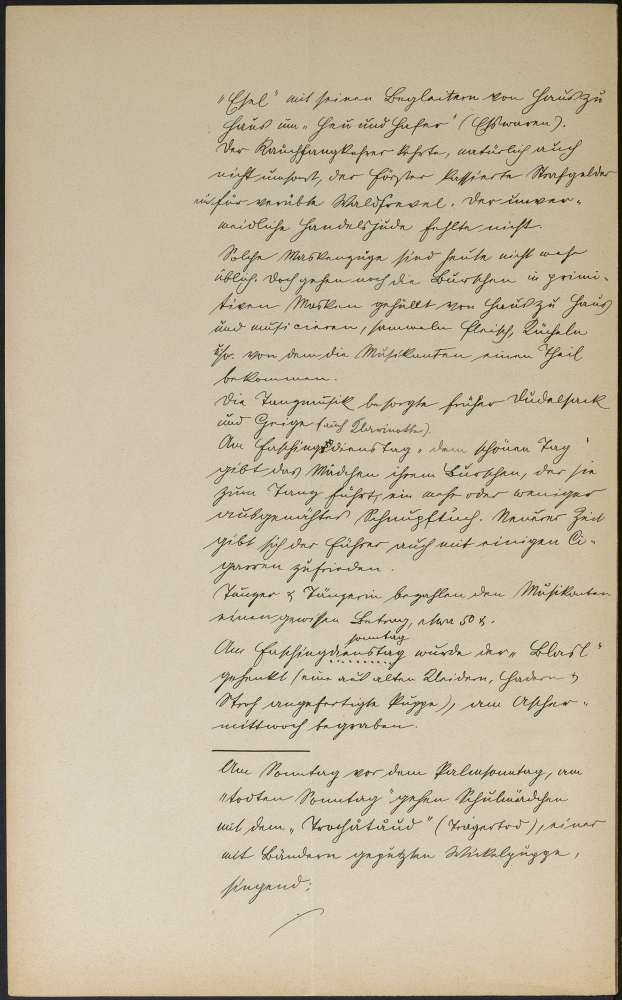 "Esel" mit seinen Begleitern von Haus zu
Haus um "Heu und Hafer" (Esswaren).
Der Rauchfangkehrer kehrte, natürlich auch
nicht umsonst, der Förster kassierte Strafgelder
für verübte Waldfrevel. Der unver-
meidliche Handelsjude fehlte nicht.
Solche Maskenzüge sind heute nicht mehr
üblich. Doch gehen noch die Burschen in primi-
tiven Masken gehüllt von Haus zu Haus
und musicieren, sammeln Fleisch, Kücheln
usw. von dem die Musikanten einen Theil
bekommen.
Die Tanzmusik besorgte früher Dudelsack
und Geige (auch Klarinette)
Am Faschingsdienstag, dem schönen Tag"
gibt das Mädchen ihrem Burschen, der sie
zum Tanz führt, ein mehr oder weniger
ausgenähtes Schnupftuch. Neuerer Zeit
gibt sich der Führer auch mit einigen Ci-
garren zufrieden.
Tänzer & Tänzerin bezahlen den Musikanten
einen gewissen Betrag, etwa 50 x.
sonntag
Am Faschingdienstag wurde der "Blasl"
gehenkt (eine aus alten Kleidern, Hadern &
Stroh angefertigte Puppe), am Ascher-
mittwoch begraben.
Am Sonntag vor dem Palmsonntag, am
"todten Sonntag" gehen Schulmädchen
mit dem "Trochatäud" (Trägertod), einer
mit Bändern geputzten Wickelpuppe,
singend: